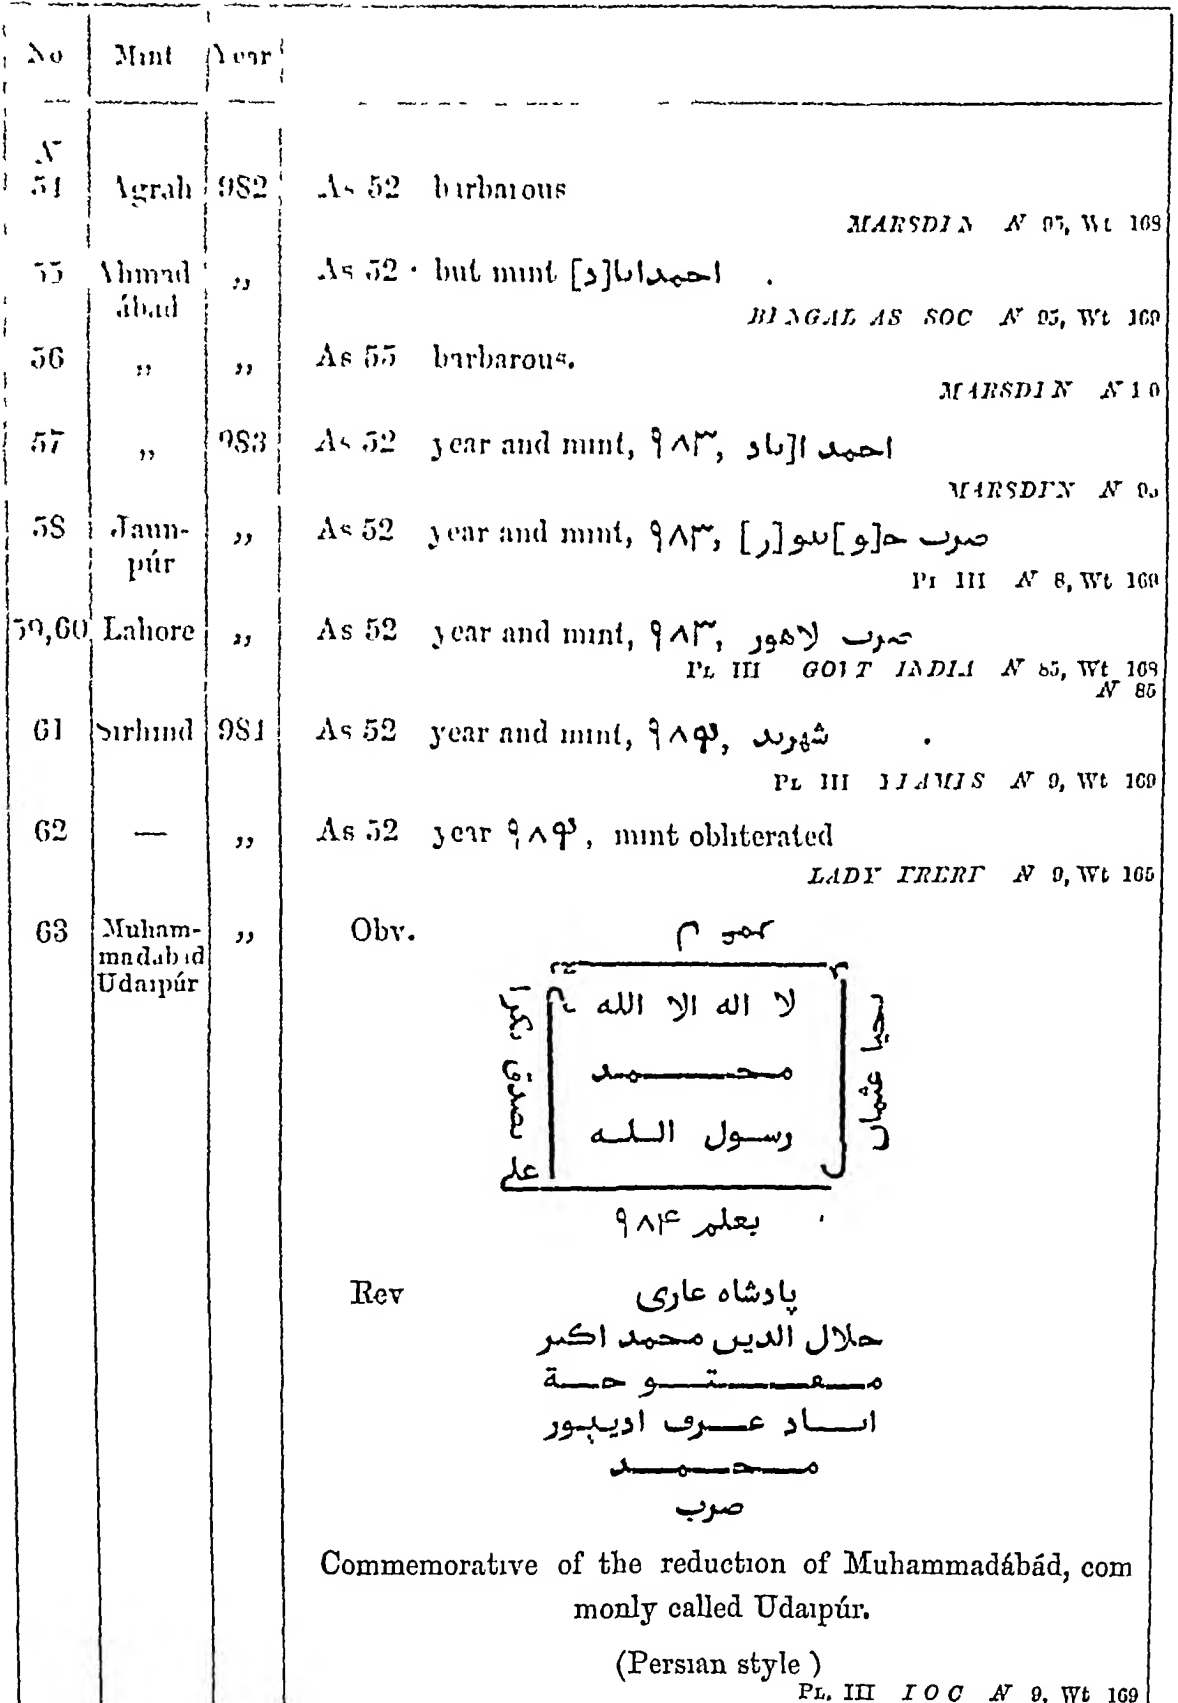 No Mint Year
N
54 Agrah 982 As 52 barbarous
MARSDEN N 95, Wt 168
55 Ahmad „ As 52 · but mint احمداىا[د] .
ábad
BENGAL AS SOC N 95, Wt 169
56 „ „ As 55 barbarous.
MARSDEN N 1 0
57 „ 983 As 52 year and mint, ٩٨٣, احمد ا[باد
MARSDEN N
58 Jaun- „ As 52 year and mint, ٩٨٣, صرب حـ[و]ںپو[ر]
púr
Pl III N 8, Wt 169
59,60 Lahore „ As 52 year and mint, ٩٨٣, صرب لاهور
PL III GOVT INDIA N 85, Wt 168
N 85
61 Sirhind 984 As 52 year and mint, ٩٨۴, شهرىد .
PL III N 9, Wt 169
62 — „ As 52 year ٩٨۴, mint obliterated
LADY FRERE N 9, Wt 165
63 Muham- „ Obv.
madabad
Udaipúr
لا اله الا الله
محمد
رسول الله
ىصدق
على
ىحيا عثماں
بعلم ٩٨۴
Rev پادشاه عارى
حلال الدىں محمد اكىر
مـفـتـوحـة
اىـاد عـرف اديپور
محمد
صرب
Commemorative of the reduction of Muhammadábád, com
monly called Udaipúr.
(Persian style )
PL. III I O C N 9, Wt 169